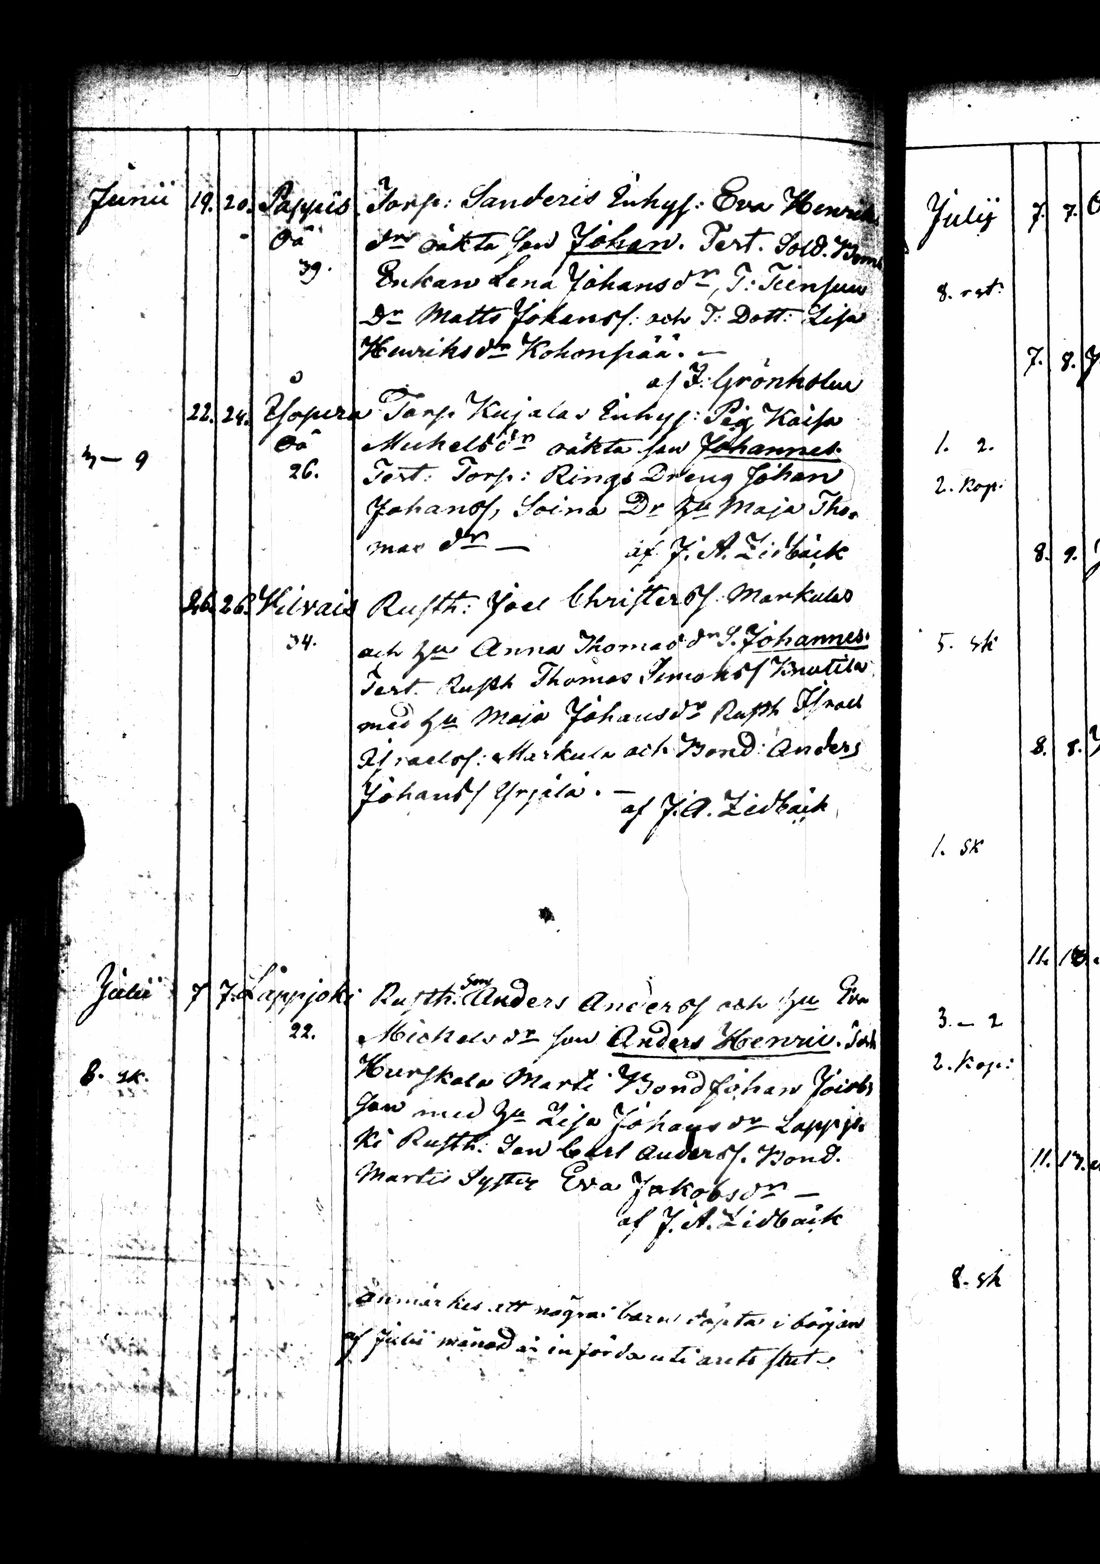 Junii 19. 20. Pappis Torp: Sanderis Inhys: Eva Henriks
Oä dr oäkta son Johan. Test. Sold.
39. Enkan Lena Johansdr, T:
Dr Matts Johanss: och T: Dott: Lisa
Henriksdr Kohonpää. —
af J: Grönholm
22. 24. Torp. Kujalas Inhys: Pig Kaisa
Oä Michelsdr oäkta son Johannes.
3 — 9
26. Test: Torp: Rings Dreng Johan
Johanss, Soina Dr hu Maja Tho-
mas dr — af J. A. Lidbäck
26. 26. Vilvais Rusth: Joel Christerss: Markulas
34. och hu Anna Thomasdr S. Johannes.
Test. Rusth Thomas Simonss Knutila
med hu Maja Johansdr Rusth Israel
Israelss: Markula och Bond: Anders
Johanss Yrjälä. —
af J. A. Lidbäck
Julii 7 7. Lappjoki Rusth. Son Anders Anderss och hu Eva
22. Michelsdr son Anders Henric. Test
8. sk. Marti Bond Johan Jacobs
son med hu Lisa Johansdr Lappjo-
ki Rusth: Son Carl Anderss. Bond.
Martis Syster Eva Jakobsdr —
af J. A. Lidbäck
Anmärkes att några barn döpta i början
af Julii månad är införda uti årets slut.
Julij 7. 7.
8. rst:
7. 8.
1. 2.
2. Kop:
8. 9.
5. sk
8. 8.
1. sk
11.
3. — 2
2. Kop:
11.
8. sk